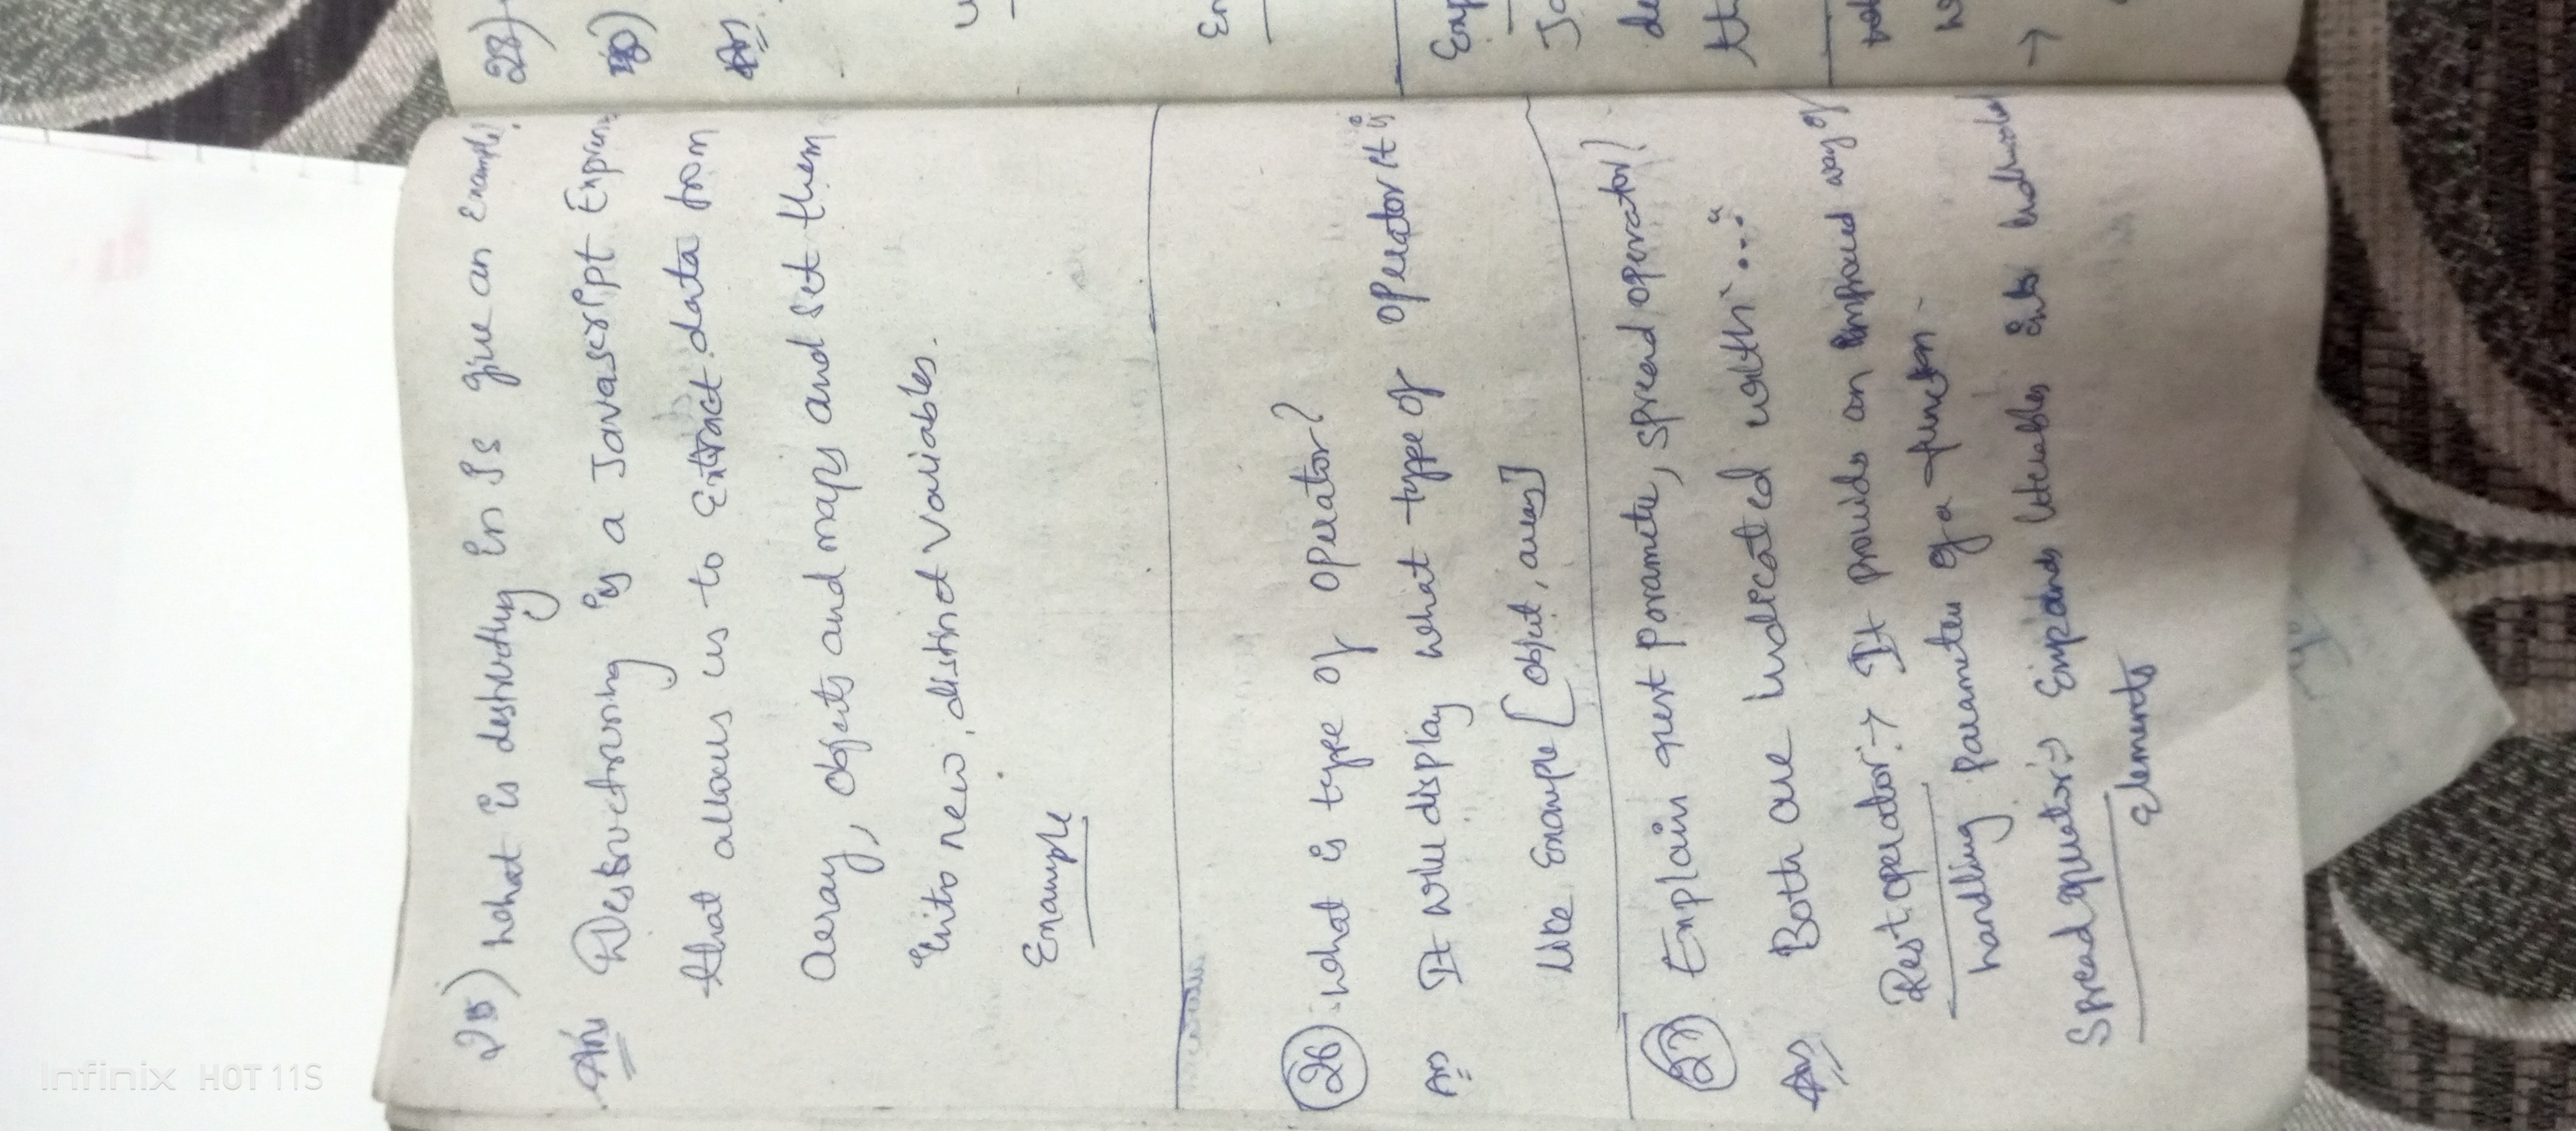 25) What is destructing in Js give an Example?
Ans Destructuring is a Javascript Expres
that allows us to Extract data from
array, objects and maps and set them
into new, distinct variables.
Example
26 what is type of operator?
Ans It will display what type of operator it is
like Example [object, array]
27 Explain rest parameter, spread operator?
Ans Both are indicated with "..."
Rest operator:→ It provides an improved way of
handling parameters of a function.
Spread operator:→ Expands iterables into individual
elements
28)
Ans
Infinix HOT 11S